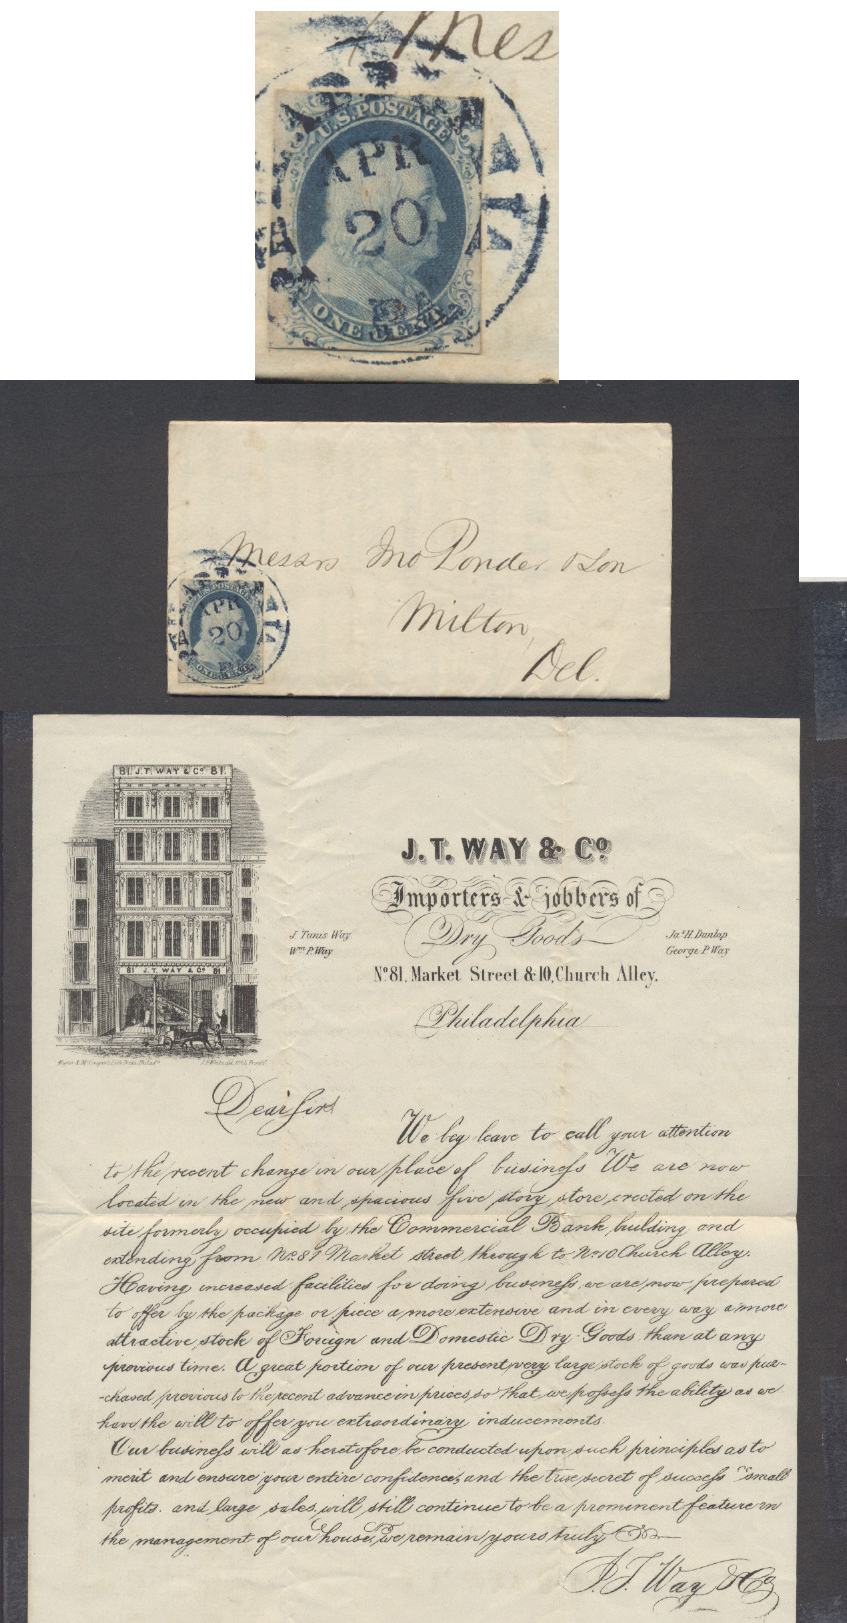 Mes
U.S. POSTAGE
APR
20
PA
ONE CENT
Messrs Jno Ponder & Son
Milton,
Del.
U.S. POSTAGE
APR
20
PA
ONE CENT
81. J. T. WAY & Co 81.
81 J. T. WAY & Co 81
J. T. WAY & Co
Importers & jobbers of
Dry Goods
J. Tunis Way
Wm P. Way
Jas H. Dunlap
George P. Way
No 81, Market Street & 10, Church Alley.
Philadelphia
Dear Sirs
We beg leave to call your attention
to the recent change in our place of business We are now
located in the new and spacious five story store, erected on the
site formerly occupied by the Commercial Bank, building and
extending from No. 81 Market street, through to No. 10 Church Alley.
Having increased facilities for doing business, we are now prepared
to offer by the package or piece a more extensive and in every way a more
attractive, stock of Foreign and Domestic Dry Goods than at any
previous time. A great portion of our present, very large stock of goods was pur-
-chased previous to the recent advance in prices, so that, we possess the ability as we
have the will to offer you extraordinary inducements.
Our business will as heretofore, be conducted upon such principles as to
merit and ensure your entire confidence, and the true secret of success "small
profits. and large sales, will still continue to be a prominent feature in
the management of our house, We remain yours truly
J. T. Way & Co